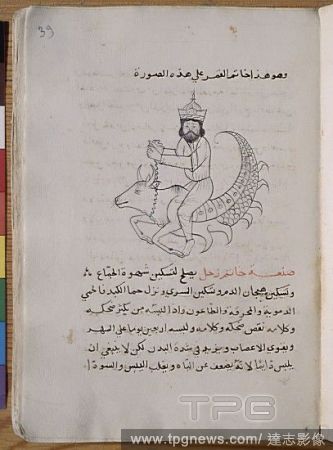 39
وهو هذا خاتم القمر على هذه الصورة
صنعة خاتم زحل يصلح لتسكين شهوة الجماع
وتسكين هيجان الدم وتسكين السرى ونزل حما الكبد نافع
الدموية والمحرقة والطاعون واذا لبسه من يكثر ضحكه
وكلامه نقص ضحكه وكلامه ولبسه اربعين يوما على السهر
ويقوى الاعصاب ويزيد في شدة البدن لكن لا ينبغي ان
يلبس دايما لانه يضعف عن الباه ويغلب اليبس والسودا
TPG
www.tpgnews.com / 達志影像